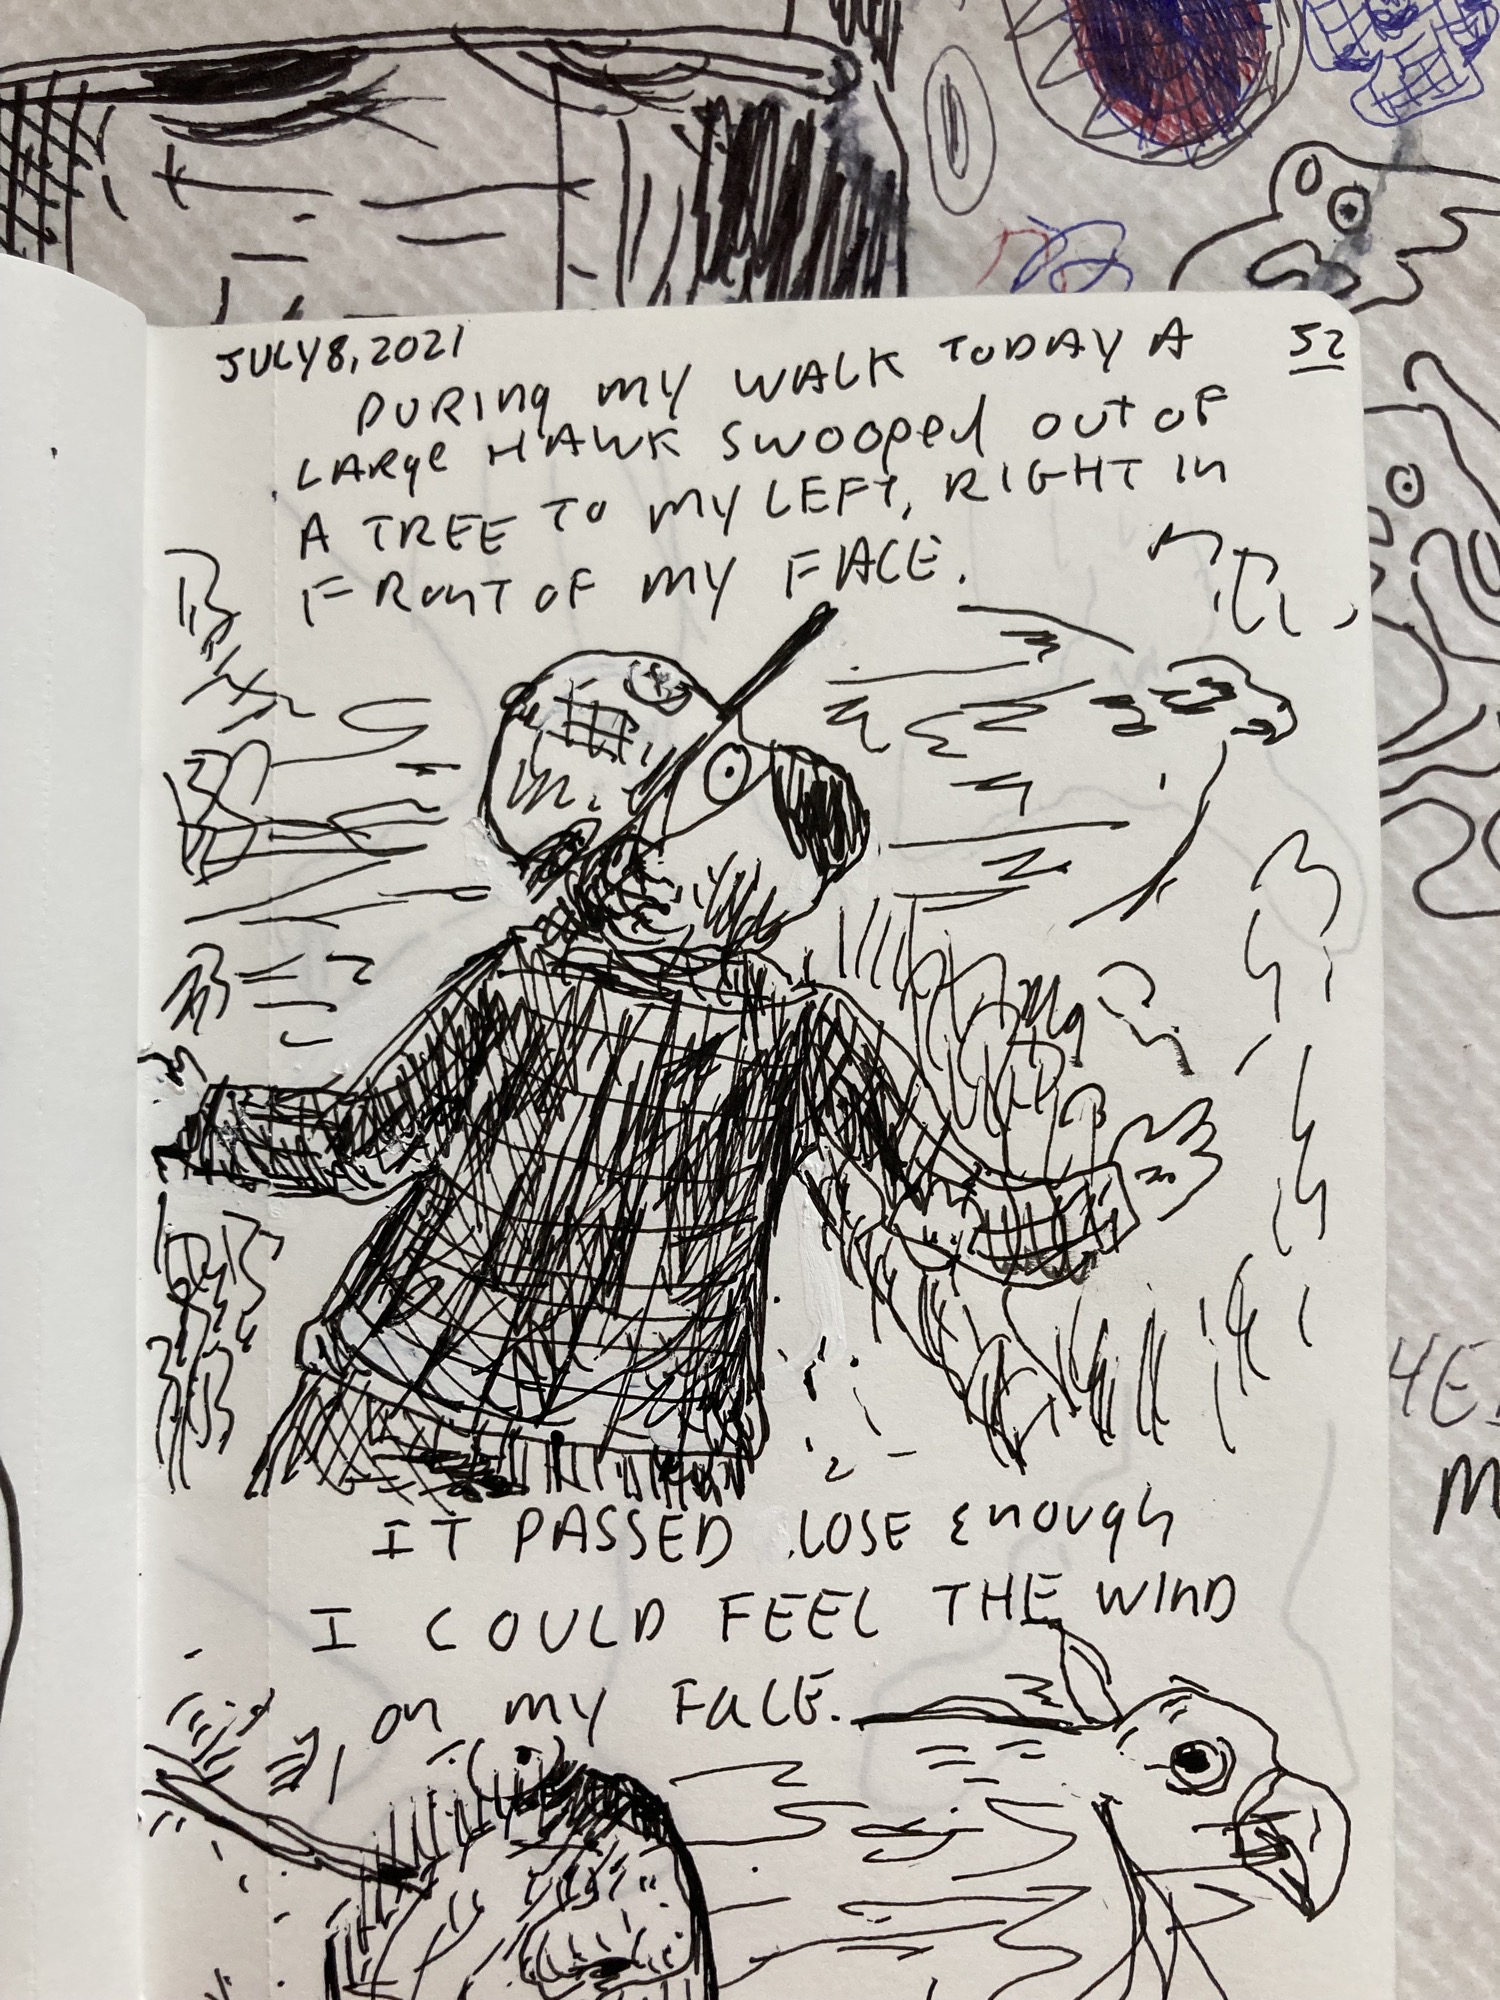 JULY 8, 2021
52
DURING MY WALK TODAY A
LARGE HAWK SWOOPED OUT OF
A TREE TO MY LEFT, RIGHT IN
FRONT OF MY FACE.
IT PASSED LOSE ENOUGH
I COULD FEEL THE WIND
ON MY FACE.